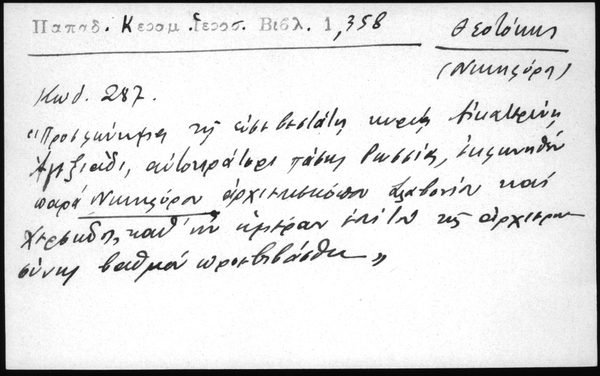 Παπαδ. Κεραμ. Ιεροσ. Βιβλ. 1, 358
Θεοτόκης
(Νικηφόρος)
Κωδ. 287.
"Προσφώνημα τῇ εὐσεβεστάτῃ κυρίᾳ Αἰκατερίνῃ
Ἀλεξιάδι, αὐτοκράτορι πάσης Ρωσσίας, ἐκφωνηθὲν
παρὰ Νικηφόρου ἀρχιεπισκόπου Σλαβονίου καὶ
Χερσῶνος, καθ' ἣν ἡμέραν ἐπὶ τὸν τῆς ἀρχιερω-
σύνης βαθμὸν προεβιβάσθη"